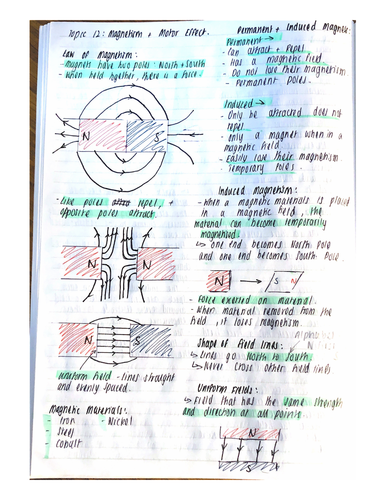 Topic 12: Magnetism + Motor Effect.
Law of Magnetism:
- Magnets have two poles: North + South
- When held together, there is a force.
N
S
- Like poles repel, +
opposite poles attract.
N
N
N
S
Uniform field - lines straight
and evenly spaced.
Magnetic Materials:
- Iron
- Nickel
- Steel
- Cobalt
Permanent + Induced Magnets
Permanent →
- Can attract + Repel
- Has a magnetic field
- Do not lose their magnetism
- Permanent poles.
Induced →
- Only be attracted does not
repel
- Only a magnet when in a
magnetic field
- Easily lose their magnetism
- Temporary poles.
Induced Magnetism:
- When a magnetic materials is placed
in a magnetic field, the
material can become temporarily
magnetised.
↳ one end becomes North Pole
and one end becomes South Pole.
N → S N
- Force exerted on material.
- When material removed from the
field, it loses magnetism.
Shape of field lines:
N
↳ Lines go North to South
↳ Never cross other field lines
Uniform Fields:
↳ Field that has the same strength
and direction at all points.
N
S